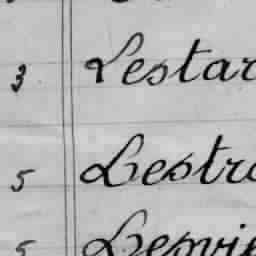 3 Lestar
5 Lestro
5 Lesvie